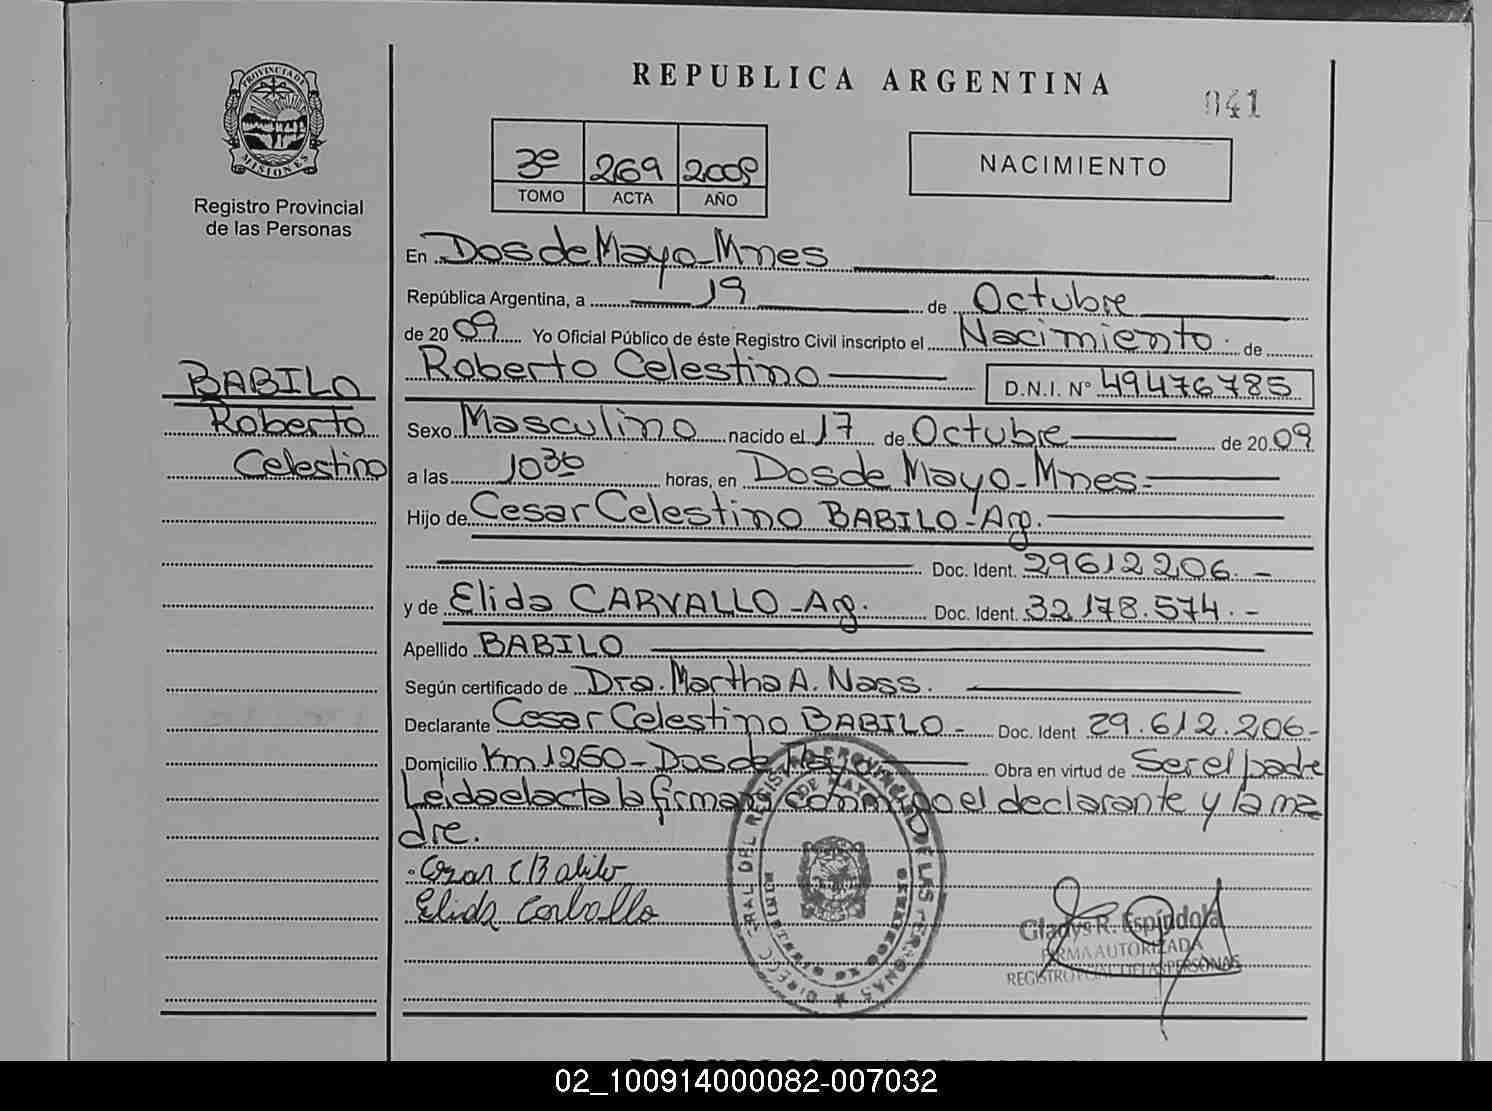 PROVINCIA DE
MISIONES
Registro Provincial
de las Personas
BABILO
Roberto
Celestino
REPUBLICA ARGENTINA
041
3º 269 2009
TOMO ACTA AÑO
NACIMIENTO
En Dos de Mayo - Mnes
República Argentina, a 19 de Octubre
de 2009 Yo Oficial Público de éste Registro Civil inscripto el Nacimiento. de
Roberto Celestino D.N.I. Nº 49476785
Sexo Masculino nacido el 17 de Octubre de 2009
a las 10 30 horas, en Dos de Mayo - Mnes.-
Hijo de Cesar Celestino BABILO - Arg.
Doc. Ident. 29612206.-
y de Elida CARVALLO - Arg. Doc. Ident. 32.178.574.-
Apellido BABILO
Según certificado de Dra. Martha A. Nass.
Declarante Cesar Celestino BABILO - Doc. Ident 29.612.206-
Domicilio Km 1260 - Dos de Mayo Obra en virtud de Ser el padre
Leida el acta la firman conmigo el declarante y la ma
dre.
Cesar C Babilo
Elida Carballo
REGISTRO PROVINCIAL DE LAS PERSONAS
DOS DE MAYO
Gladys R. Espíndola
FIRMA AUTORIZADA
REGISTRO PCIAL DE LAS PERSONAS
02_100914000082-007032